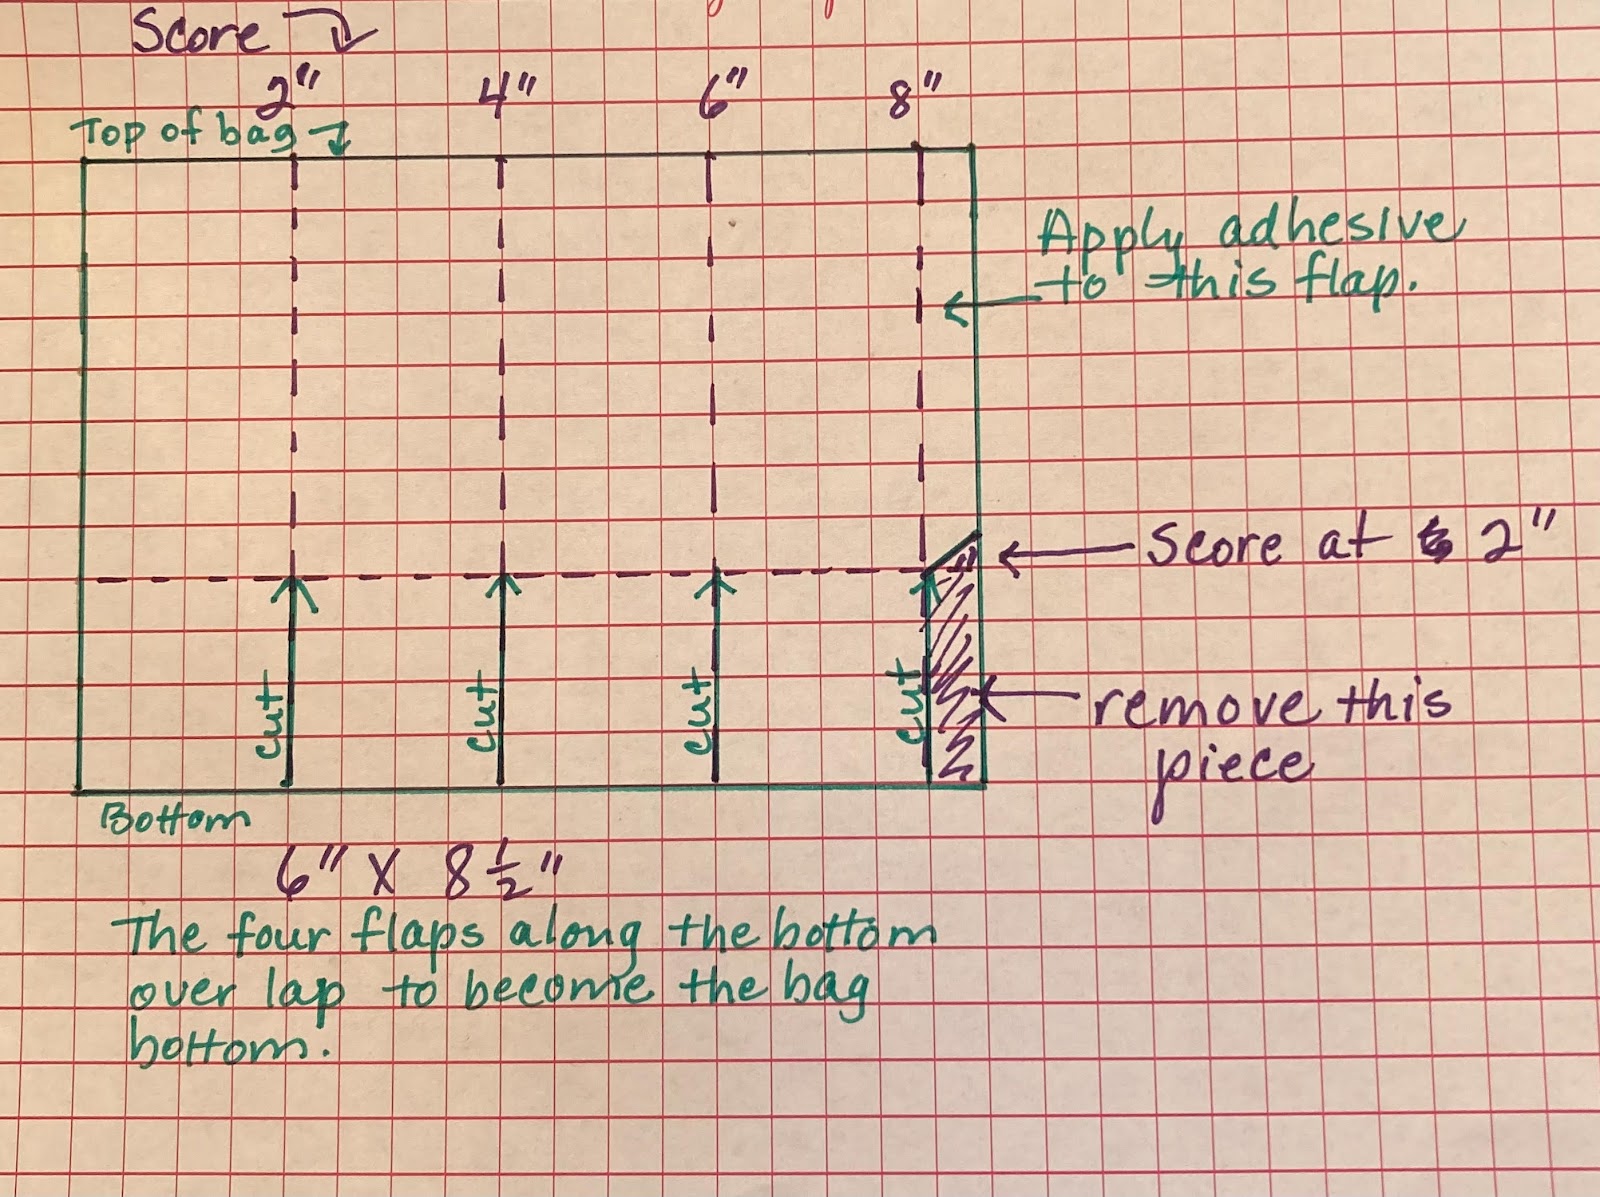 Score
2" 4" 6" 8"
Top of bag
Apply adhesive
to this flap.
Score at 2"
cut cut cut cut
remove this
piece
Bottom
6" X 8 1/2"
The four flaps along the bottom
over lap to become the bag
bottom.